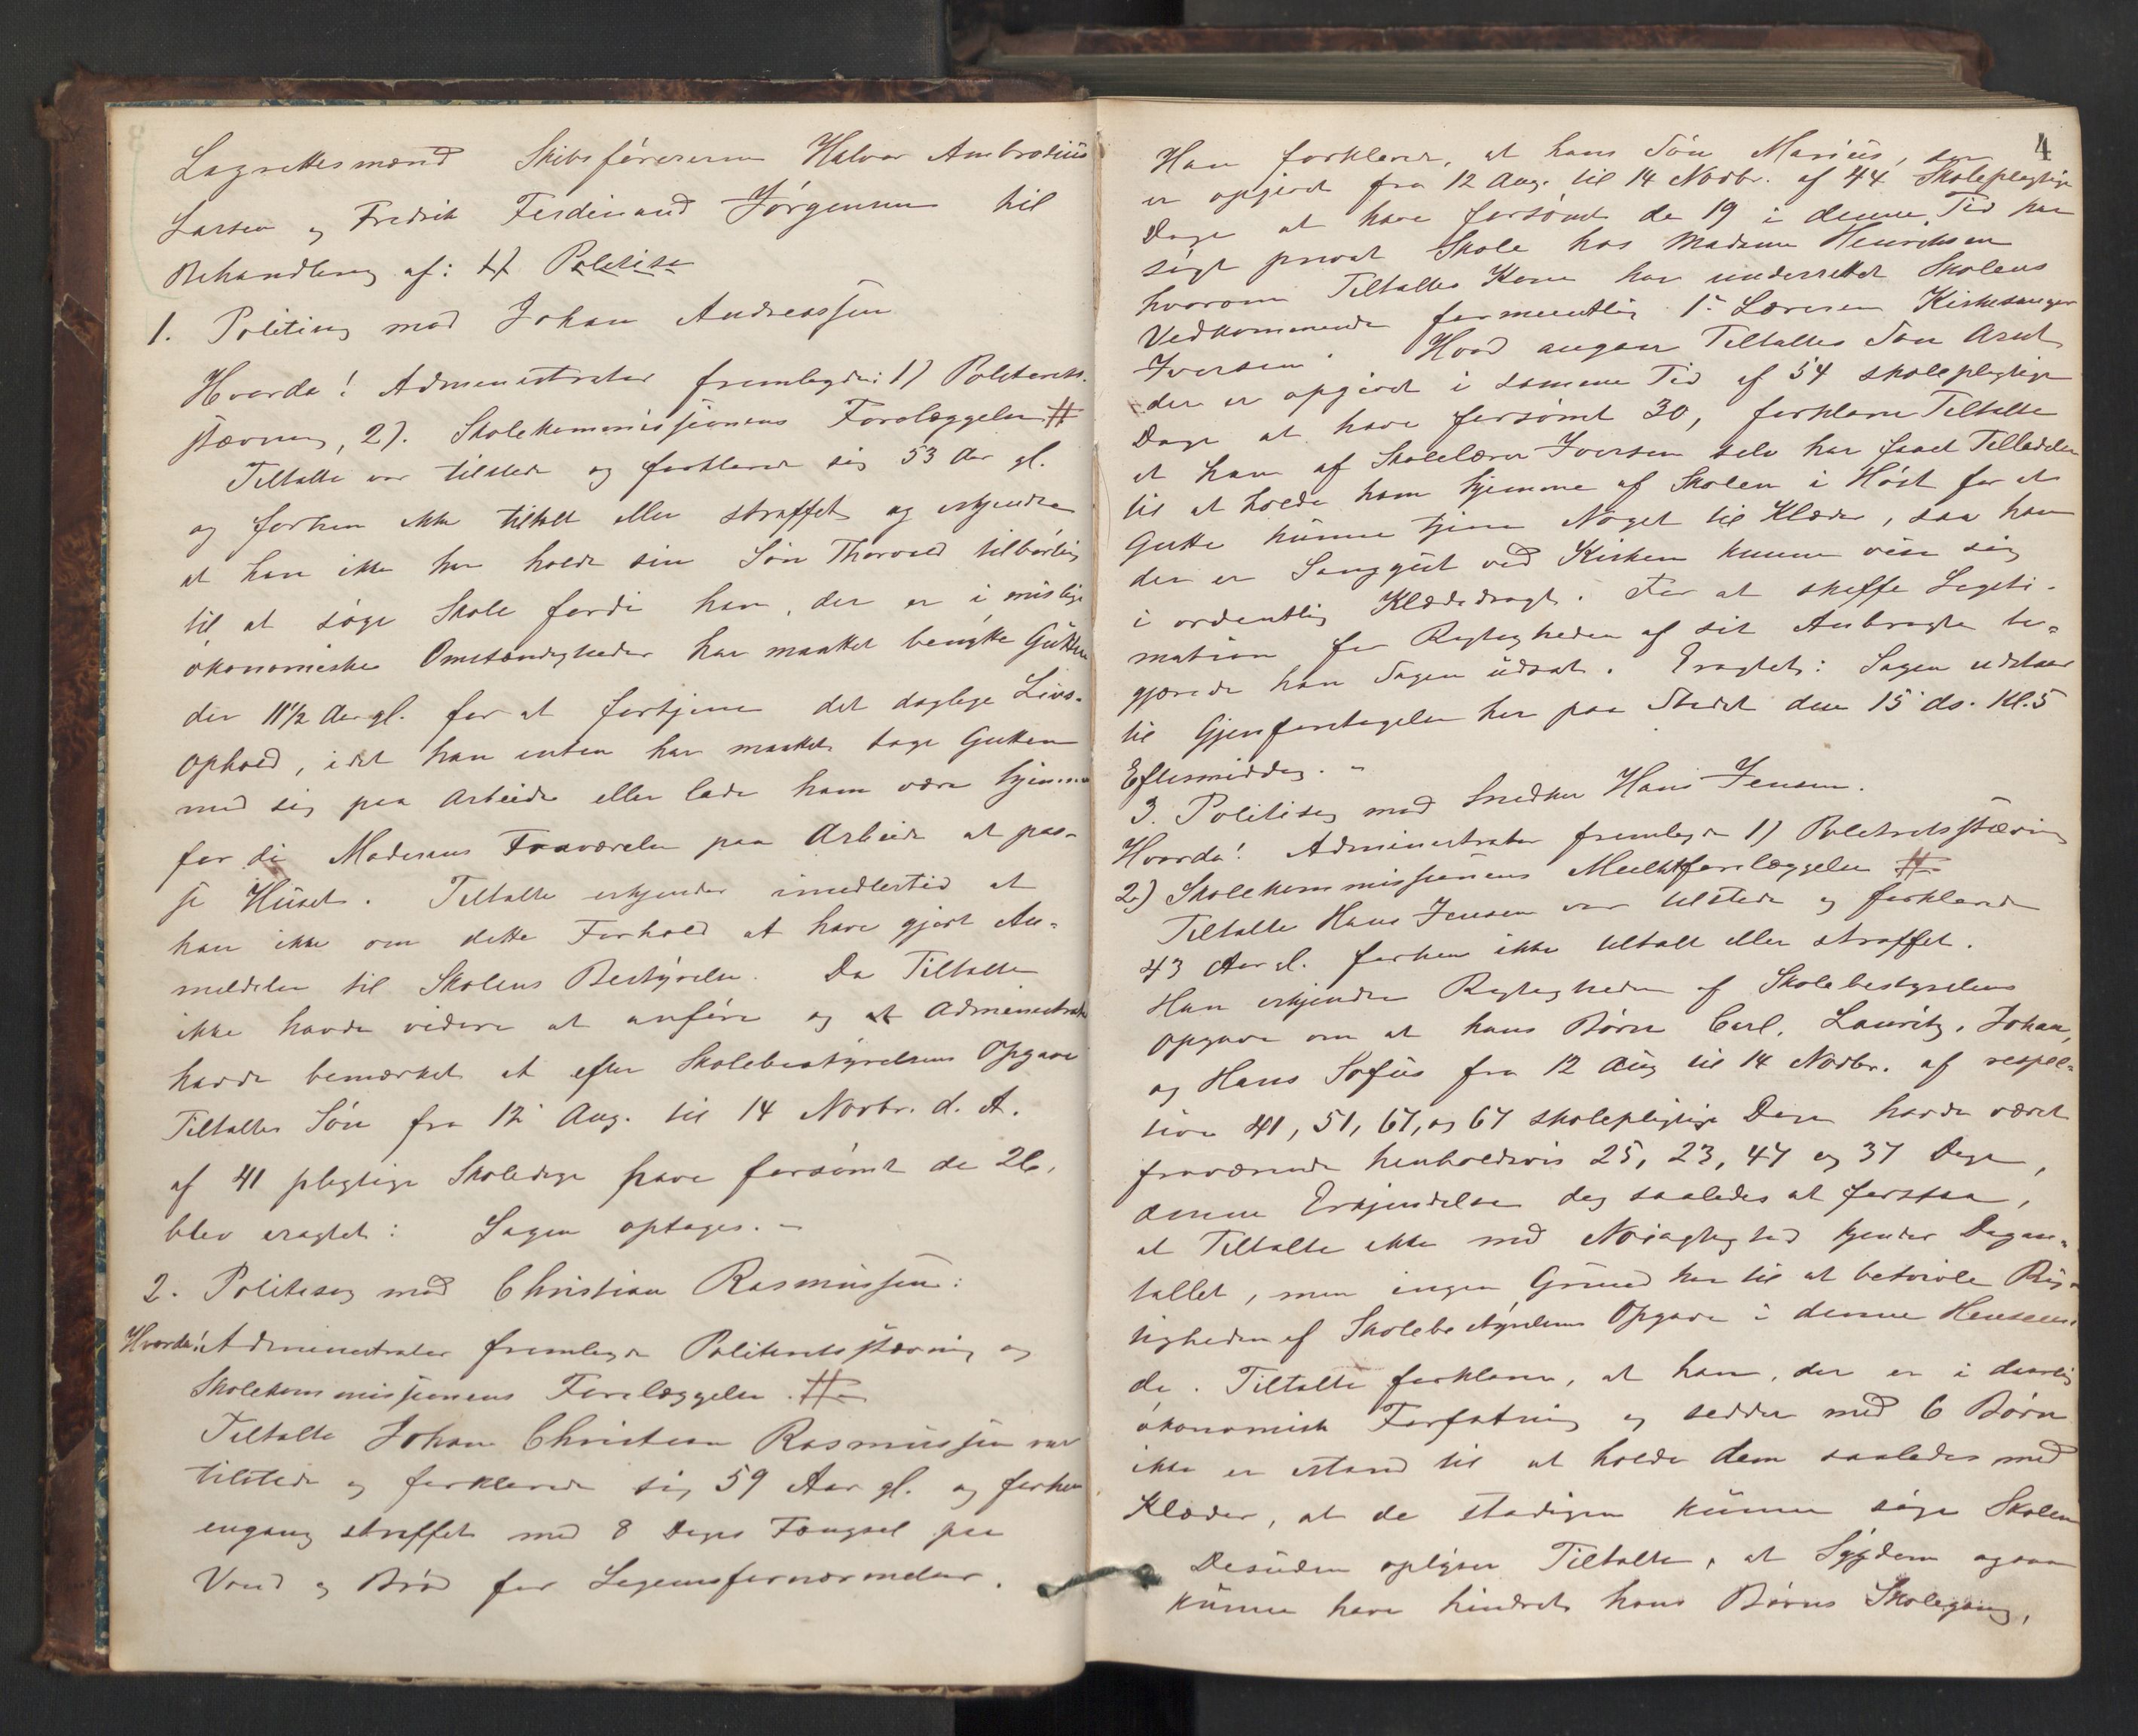 Lagrettesmænd Skibsførererne Halvor Ambrosius
Larsen og Fredrik Ferdinand Jørgensen til
Behandling af:
1. Politisag mod Johan Andreassen
Hvorda! Administrator fremlagde: 1) Politirets-
stævning, 2). Skolekommissionens Forelæggelse #
Tiltalte var tilstede og forklarede sig 53 Aar gl.
og forhen ikke tiltalt eller straffet og erkjendte
at han ikke har holdt sin Søn Thorvald tilbørlig
til at søge Skole fordi han, der er i mislige
økonomiske Omstændigheder har maattet benytte Gutten
der 11½ Aar gl. for at fortjene det daglige Livs-
ophold, idet han enten har maattet tage Gutten
med sig paa Arbeide eller lade ham være hjemme
for di Moderens Fraværelse paa Arbeide at pas-
se Huset. Tiltalte erkjender imidlertid at
han ikke om dette Forhold at have gjort An-
meldelse til Skolens Bestyrelse. Da Tiltalte
ikke havde videre at anføre og at Administrator
havde bemærket at efter Skolebestyrelsens Opgave
Tiltaltes Søn fra 12 Aug. til 14 Novbr. d. A.
af 41 pligtige Skoledage have forsømt de 26,
blev eragtet: Sagen optages. -
2. Politisag mod Christian Rasmussen:
Hvorda! Administrator fremlagde Politiretsstævning og
Skolekommissionens Forelæggelse. #
Tiltalte Johan Christian Rasmussen var
tilstede og forklarede sig 59 Aar gl. og forhen
engang straffet med 8 Dages Fængsel paa
Vand og Brød for Legemsfornærmelse.
4
Han forklarede, at hans Søn Marius, som
er opgivet fra 12 Aug. til 14 Novbr. af 44 Skolepligtige
Dage at have forsømt de 19 i denne Tid har
søgt privat Skole hos Madame Henriksen
hvorom Tiltaltes Kone har underrettet Skolens
Vedkommende formentlig 1ste Læreren Kirkesanger
Iversen. Hvad angaar Tiltaltes Søn Arnt
der er opgivet i samme Tid af 54 skolepligtige
Dage at have forsømt 30, forklarer Tiltalte
at han af Skolelærer Iversen selv har faaet Tilladelse
til at holde ham hjemme af Skolen i Høst for at
Gutten kunne tjene Noget til Klæder, saa han
der er Sanggut ved Kirken kunne vise sig
i ordentlig Klædedragt. For at skaffe Legiti-
mation for Rigtigheden af sit Anbragte be-
gjærede han Sagen udsat. Eragtet: Sagen udstaar
til Gjenforetagelse her paa Stedet den 15 ds. Kl. 5
Eftermiddag. -
3. Politisag mod Snedker Hans Jensen.
Hvorda! Administrator fremlagde 1) Politiretsstævning
2) Skolekommissionens Mulktforelæggelse #
Tiltalte Hans Jensen var tilstede og forklarede
43 Aar gl. forhen ikke tiltalt eller straffet.
Han erkjendte Rigtigheden af Skolebestyrelsens
Opgave om at hans Børn Carl, Lauritz, Johan,
og Hans Sofus fra 12 Aug til 14 Novbr. af respek-
tive 41, 51, 67, og 67 skolepligtige Dage havde været
fraværende henholdsvis 25, 23, 47 og 37 Dage,
denne Erkjendelse dog saaledes at forstaa,
at Tiltalte ikke med Nøiagtighed kjender Dagan-
tallet, men ingen Grund har til at betvivle Rig-
tigheden af Skolebestyrelsens Opgave i denne Henseen-
de. Tiltalte forklarer, at han, der er i daarlig
økonomisk Forfatning og sidder med 6 Børn
ikke er istand til at holde dem saaledes med
Klæder, at de stadigen kunne søge Skolen
Desuden oplyser Tiltalte, at Sygdom ogsaa
kunne have hindret hans Børns Skolegang,